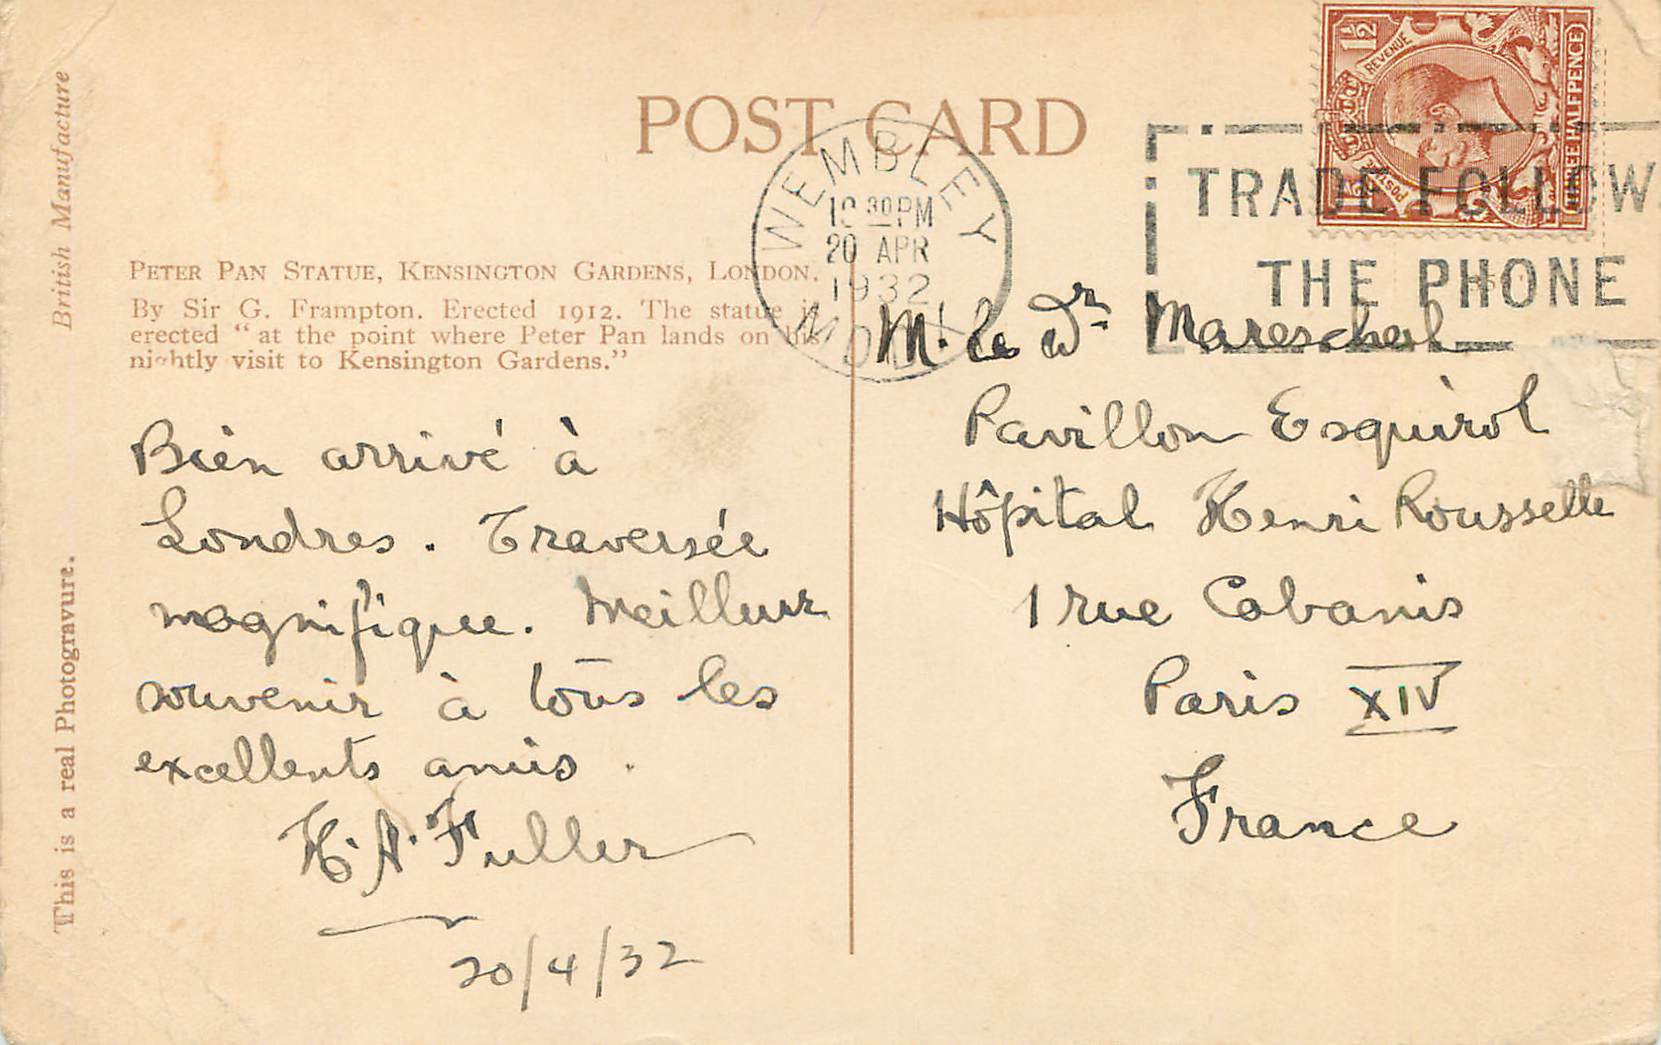 British Manufacture
This is a real Photogravure.
POST CARD
PETER PAN STATUE, KENSINGTON GARDENS, LONDON.
By Sir G. Frampton. Erected 1912. The statue is
erected "at the point where Peter Pan lands on his
nightly visit to Kensington Gardens."
WEMBLEY
30 PM
20 APR
1932
MDDX
1½ REVENUE
POSTAGE 1½
THREE HALFPENCE
TRADE FOLLOWS
THE PHONE
Bien arrivé à
Londres. Traversée
magnifique. Meilleur
souvenir à tous les
excellents amis.
H. A. Fuller
20/4/32
M. le Dr. Mareschal
Pavillon Esquirol
Hôpital Henri Rousselle
1 rue Cabanis
Paris XIV
France